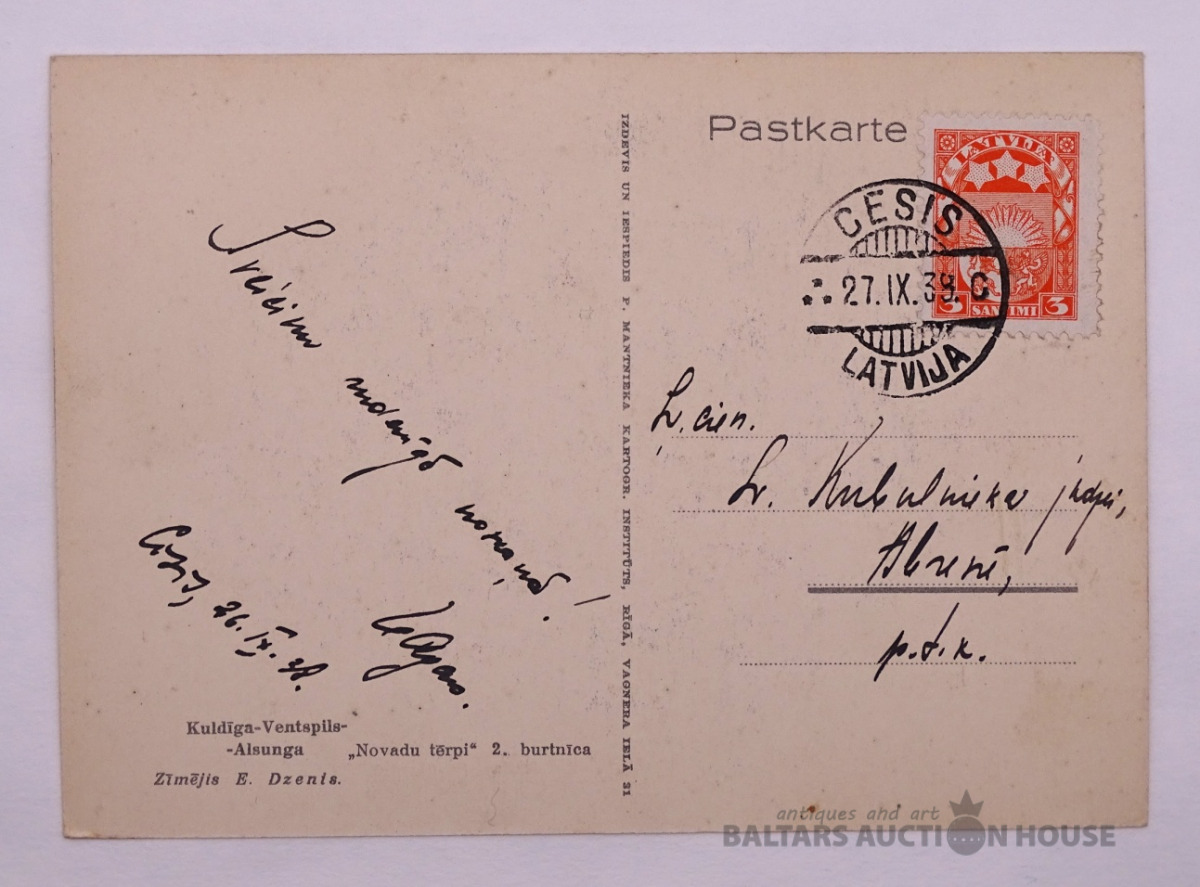 Pastkarte
LATVIJA
3 SANTIMI 3
CĒSIS
27.IX.38. C
LATVIJA
Sveicinu
novaņā!
Cēsīs, 26.IX.38.
Ļ. cien.
Kubulnieka kdzei,
Abrenē,
p.t.k.
IZDEVIS UN IESPIEDIS P. MANTNIEKA KARTOGR. INSTITŪTS, RĪGĀ, VAGNERA IELĀ 21
Kuldīga-Ventspils-
-Alsunga „Novadu tērpi“ 2. burtnīca
Zīmējis E. Dzenis.
antiques and art
BALTARS AUCTION HOUSE